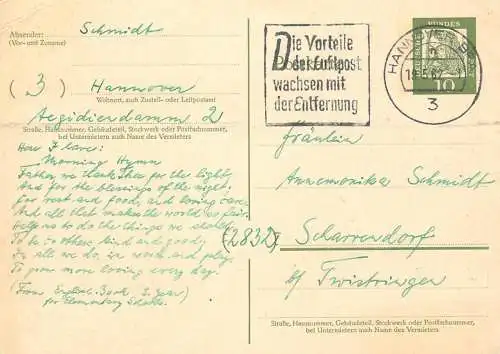 Absender:
(Vor- und Zuname)
Schmidt
(3) Hannover
Wohnort, auch Zustell- oder Leitpostamt
Aegidiendamm 2
Straße, Hausnummer, Gebäudeteil, Stockwerk oder Postfachnummer,
bei Untermietern auch Name des Vermieters
Here I have:
Morning Hymn
Father, we thank Thee for the light,
And for the blessings of the night;
For rest and food, and loving care
And all that makes the world so fair.
Help us to do the things we should,
To be to others kind and good,
In all we do, in work and play,
To grow more loving every day.
(From English Book, 2. Year)
for Elementary
Die Vorteile
der Luftpost
wachsen mit
der Entfernung
Postkarte
HANNOVER
3
BUNDES
10
Fräulein
Annemonika Schmidt
(2832) Scharrendorf
bf Twistringen
Straße, Hausnummer, Gebäudeteil, Stockwerk oder Postfachnummer,
bei Untermietern auch Name des Vermieters